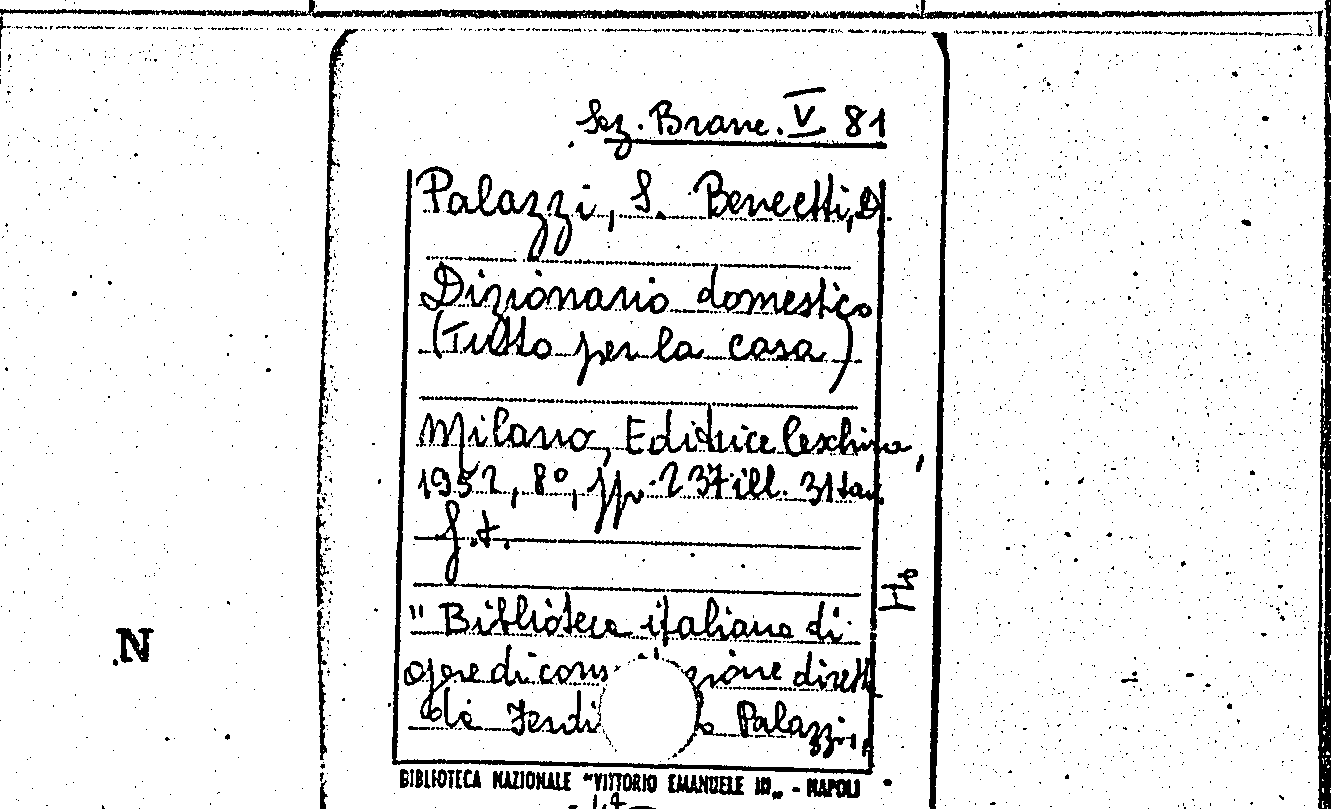 Sez. Branc. V 81
Palazzi, S. Benetti, D.
Dizionario domestico
(Tutto per la casa)
Milano, Editrice Ceschina,
1952, 8º, pp. 237 ill. 31 tav.
f.t.
" Biblioteca italiana di
opere di cons zione dirett
da Ferdi o Palazzi,,
N
BIBLIOTECA NAZIONALE "VITTORIO EMANUELE III„ - NAPOLI